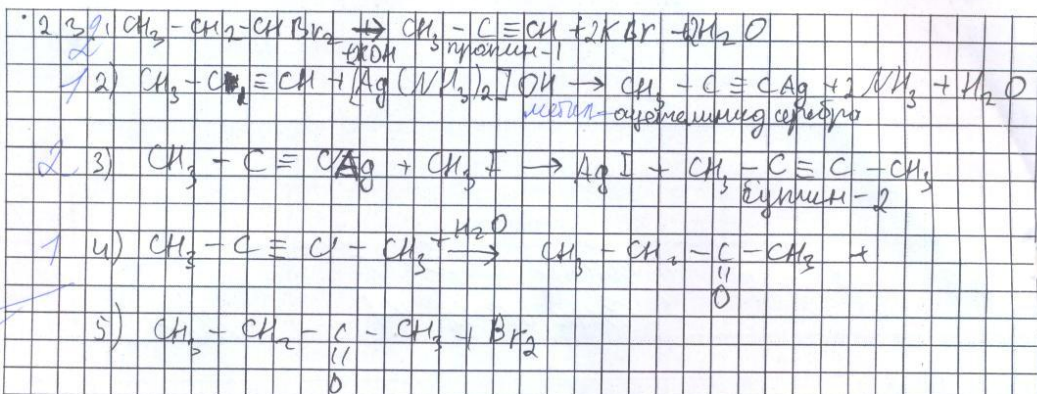 2.3. 1. CH3 – CH2 – CHBr2 → CH3 – C ≡ CH + 2KBr + 2H2O
2 +2KOH пропин-1
1 2) CH3 – C ≡ CH + [Ag(NH3)2]OH → CH3 – C ≡ CAg + 2NH3 + H2O
метил-ацетиленид серебра
2 3) CH3 – C ≡ CAg + CH3I → AgI + CH3 – C ≡ C – CH3
бутин-2
1 4) CH3 – C ≡ C – CH3 + H2O → CH3 – CH2 – C – CH3 +
O
5) CH3 – CH2 – C – CH3 + Br2
O